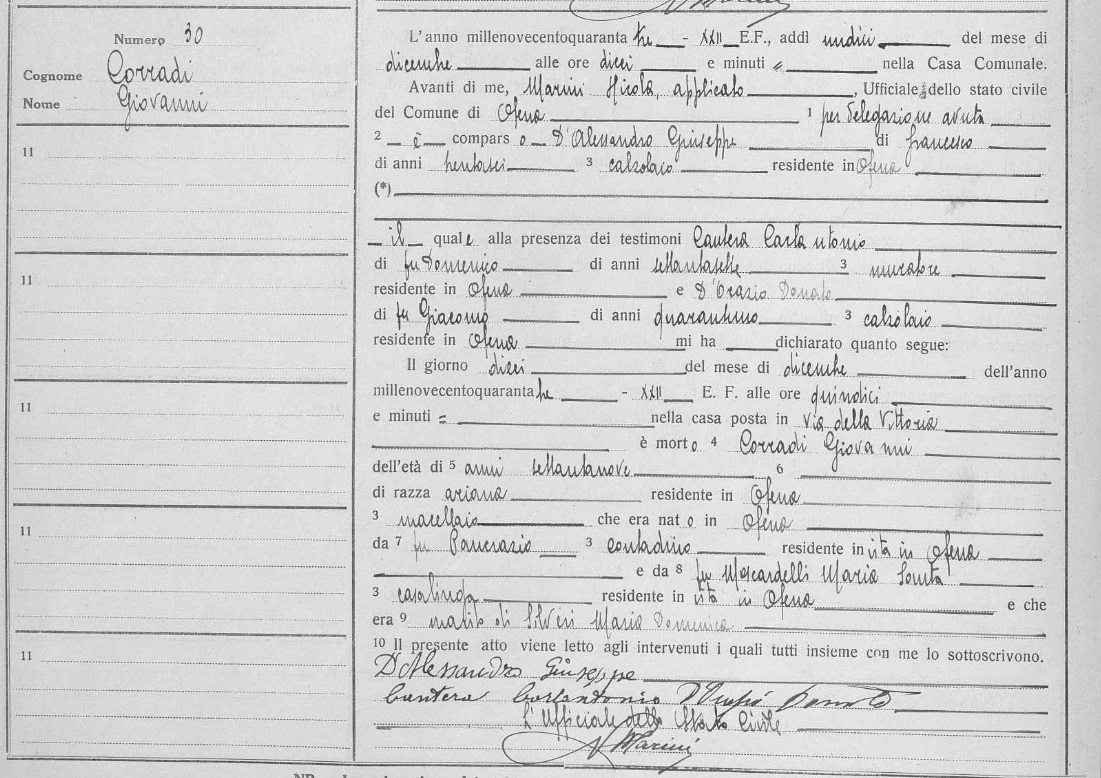 Numero 30
Cognome Corradi
Nome Giovanni
11
11
11
11
11
L'anno millenovecentoquaranta tre - XXII E.F., addì undici del mese di
dicembre alle ore dieci e minuti = nella Casa Comunale.
Avanti di me, Marini Nicola, applicato, Ufficiale dello stato civile
del Comune di Ofena 1 per delegazione avuta
2 è compars o D'Alessandro Giuseppe di Francesco
di anni trentasei 3 calzolaio residente in Ofena
(*)
il quale alla presenza dei testimoni Cantera Costantonio
di fu Domenico di anni settantasette 3 muratore
residente in Ofena e D'Orazio Donato
di fu Giacomo di anni quarantuno 3 calzolaio
residente in Ofena mi ha dichiarato quanto segue:
Il giorno dieci del mese di dicembre dell'anno
millenovecentoquaranta tre - XXII E. F. alle ore quindici
e minuti = nella casa posta in Via della Vittoria
è morto 4 Corradi Giovanni
dell'età di 5 anni settantanove 6
di razza ariana residente in Ofena
3 macellaio che era nato in Ofena
da 7 fu Pancrazio 3 contadino residente in vita in Ofena
e da 8 fu Moscardelli Maria Santa
3 casalinga residente in vita in Ofena e che
era 9 marito di Silveri Maria Domenica
10 Il presente atto viene letto agli intervenuti i quali tutti insieme con me lo sottoscrivono.
D'Alessandro Giuseppe
Cantera Costantonio D'Orazio Donato
L'Ufficiale dello Stato Civile
N Marini